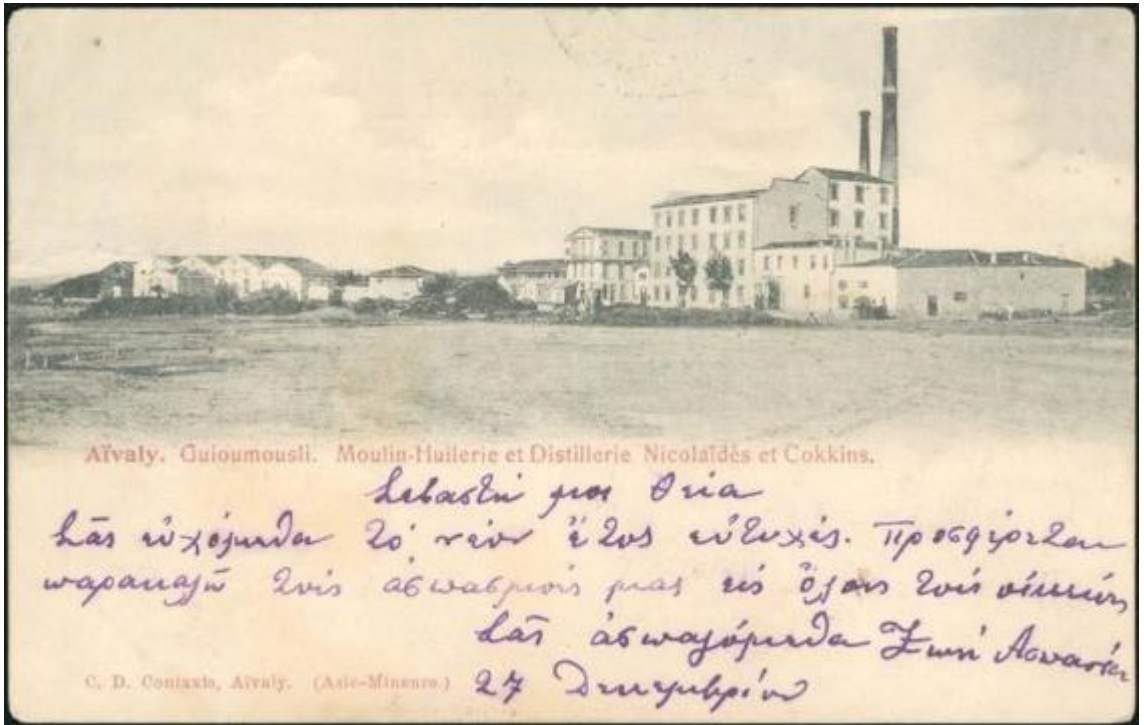 Aïvaly. Guioumousli. Moulin-Huilerie et Distillerie Nicolaïdès et Cokkins.
Σεβαστή μοι θεία
Σᾶς εὐχόμεθα τό νέον ἔτος εὐτυχές. Προσφέρεται
παρακαλῶ τούς ἀσπασμούς μας εἰς ὅλους τούς οἰκείους
Σᾶς ἀσπαζόμεθα Ζωή Ἀσπασία
C. D. Contaxis, Aïvaly. (Asie-Mineure.) 27 Δεκεμβρίου